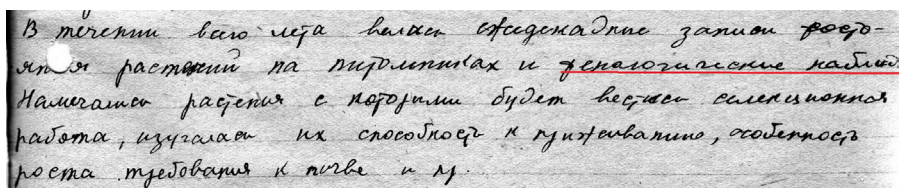 В течении всего лета велись ежедекадные записи состо-
яния растений на питомниках и фенологические наблюд.
Намечались растения с которыми будет вестись селекционная
работа, изучалась их способность к приживанию, особенность
роста требования к почве и пр.